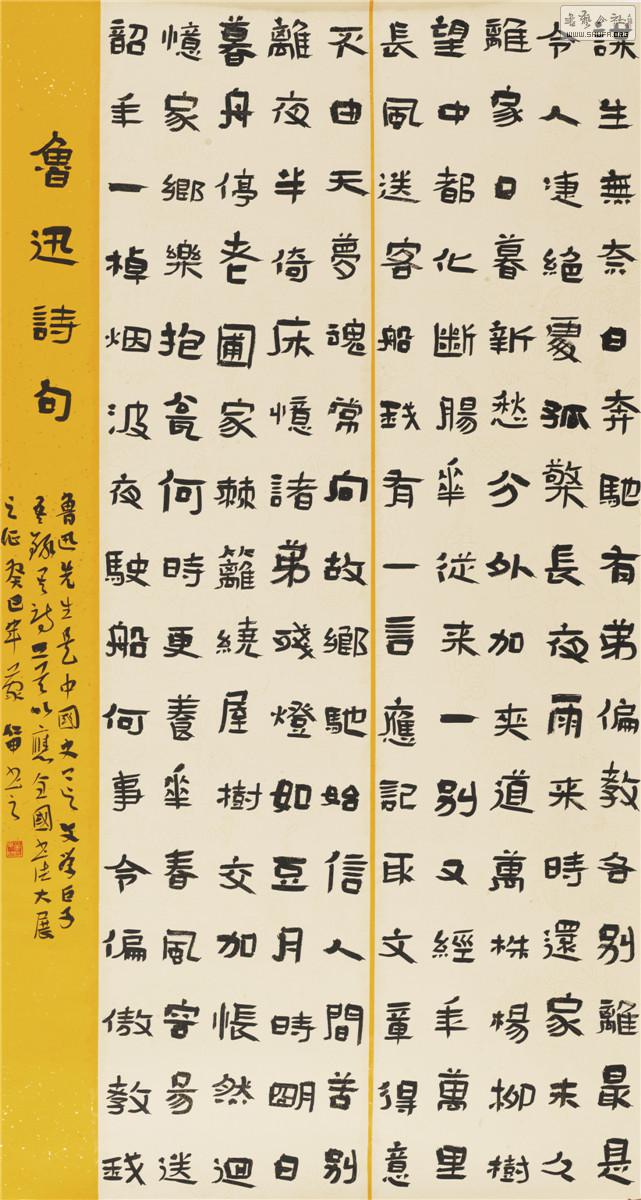 謀生無奈日奔馳有弟偏教各别離最是
令人凄絕處孤檠長夜雨来時還家未久
離家日暮新愁分外加夾道萬株楊柳樹
望中都化斷腸華從来一别又經年萬里
長風送客船我有一言應記取文章得意
不由天夢魂常向故鄉馳始信人間苦别
離夜半倚床憶諸弟殘燈如豆月時明日
暮舟停老圃家棘籬繞屋樹交加悵然迴
憶家鄉樂抱瓮何時更養華春風容易送
韶年一棹烟波夜駛船何事令偏傲教我
魯迅詩句
魯迅先生是中國史上之文學巨手
吾録其詩以應全國書法大展
之征癸巳年書之
WWW.SHUFA.ORG